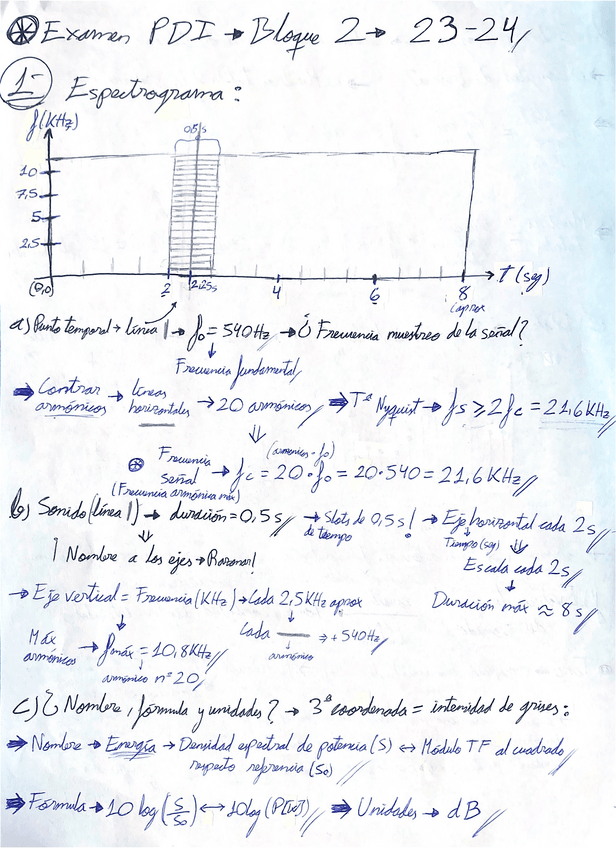 ⊛ Examen PDI → Bloque 2 → 23-24
1- Espectrograma:
f(KHz)
0,5 s
10
7,5
5
2,5
(0,0)
2
2,25s
4
6
8
t (seg)
(aprox
a) Punto temporal → línea | → f₀ = 540Hz → ¿Frecuencia muestreo de la señal?
Frecuencia fundamental
⇒ Contrar armónicos → líneas horizontales → 20 armónicos ⇒ Tª Nyquist → fs ≥ 2fc = 21,6KHz
(armónicos · f₀)
⊛ Frecuencia señal → fc = 20 · f₀ = 20·540 = 21,6KHz
(Frecuencia armónico máx)
b) Sonido (línea |) → duración = 0,5 s → Slots de 0,5 s! → Eje horizontal cada 2s
de tiempo
Tiempo (seg)
¡Nombre a los ejes → Razonar!
Escala cada 2s
→ Eje vertical = Frecuencia (KHz) → Cada 2,5KHz aprox
Duración máx ≈ 8 s
Máx armónicos → fmáx = 10,8KHz
Cada — ⇒ +540Hz
armónico
armónico nº 20
c) ¿Nombre, fórmula y unidades? → 3ª coordenada = intensidad de grises:
⇒ Nombre → Energía → Densidad espectral de potencia (S) ↔ Módulo TF al cuadrado
respecto referencia (S₀)
⇒ Fórmula → 10 log (S/S₀) ↔ 10log (P[ω]) ⇒ Unidades → dB